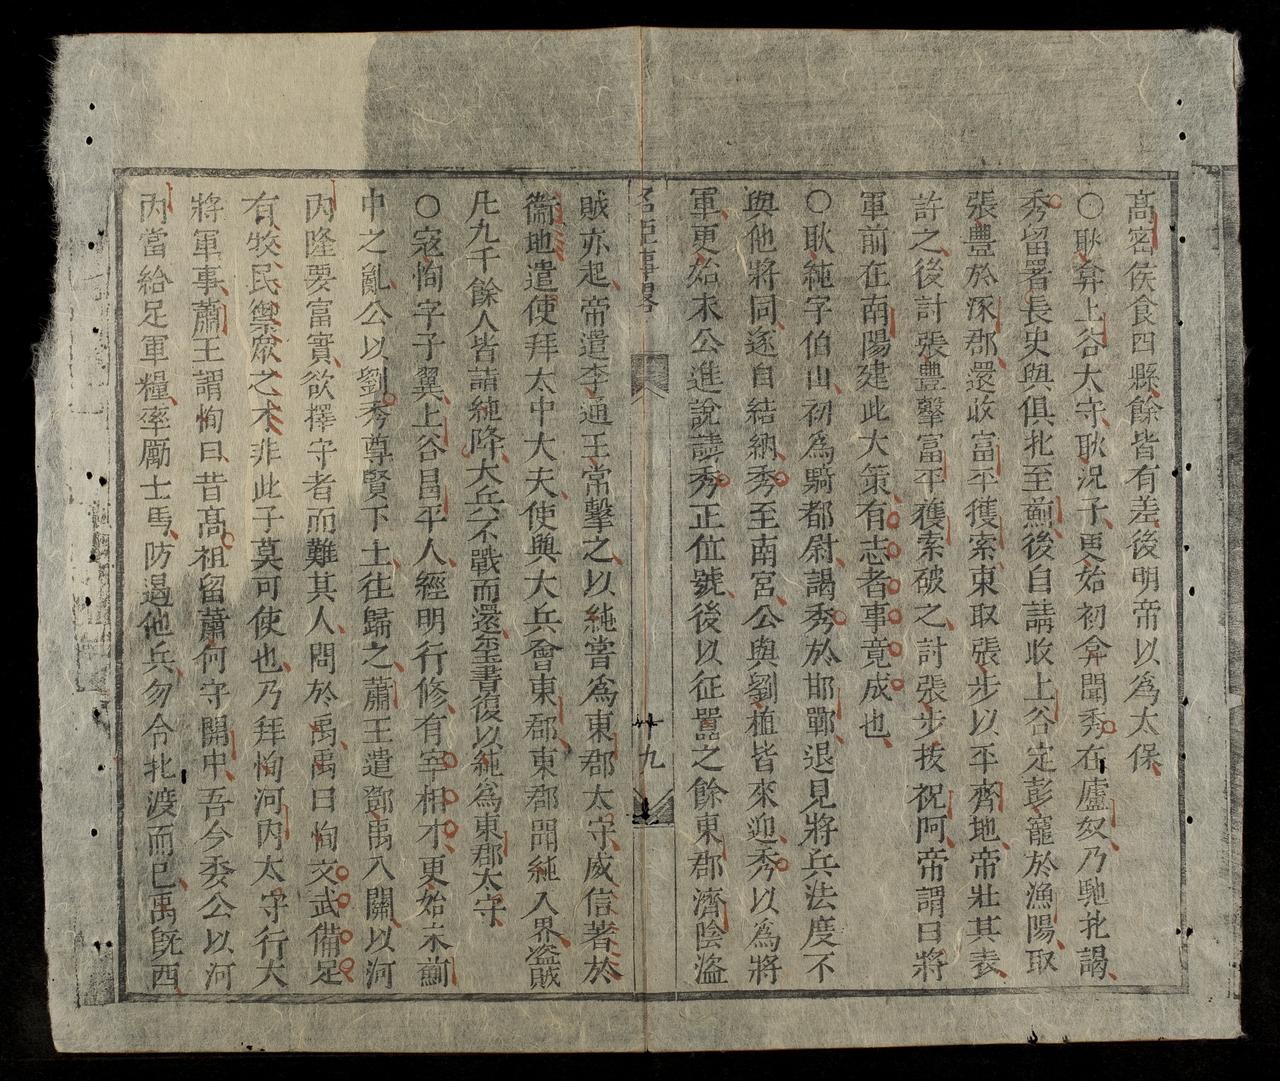 高密侯食四縣餘皆有差後明帝以為太保
○耿弇上谷太守耿況子更始初弇聞秀在廬奴乃馳北謁
秀留署長史與俱北至薊後自請收上谷定彭寵於漁陽取
張豐於涿郡還收富平獲索東取張步以平齊地帝壯其表
許之後討張豊擊富平獲索破之討張步拔祝阿帝謂曰將
軍前在南陽建此大策有志者事竟成也
○耿純字伯山初為騎都尉謁秀於邯鄲退見將兵法度不
與他將同遂自結納秀至南宮公與劉植皆來迎秀以為將
軍更始末公進說請秀正位號後以征囂之餘東郡濟陰盜
名臣事畧
十九
賊亦起帝遣李通王常擊之以純嘗為東郡太守威信著於
衞地遣使拜太中大夫使與大兵會東郡東郡聞純入界盜賊
凡九千餘人皆詣純降大兵不戰而還璽書復以純為東郡太守
○寇恂字子翼上谷昌平人經明行修有宰相才更始末薊
中之亂公以劉秀尊賢下士往歸之蕭王遣鄧禹入關以河
內隆要富實欲擇守者而難其人問於禹禹曰恂文武備足
有牧民禦衆之才非此子莫可使也乃拜恂河內太守行大
將軍事蕭王謂恂曰昔高祖留蕭何守關中吾今委公以河
內當給足軍糧率厲士馬防遏他兵勿令北渡而已禹旣西